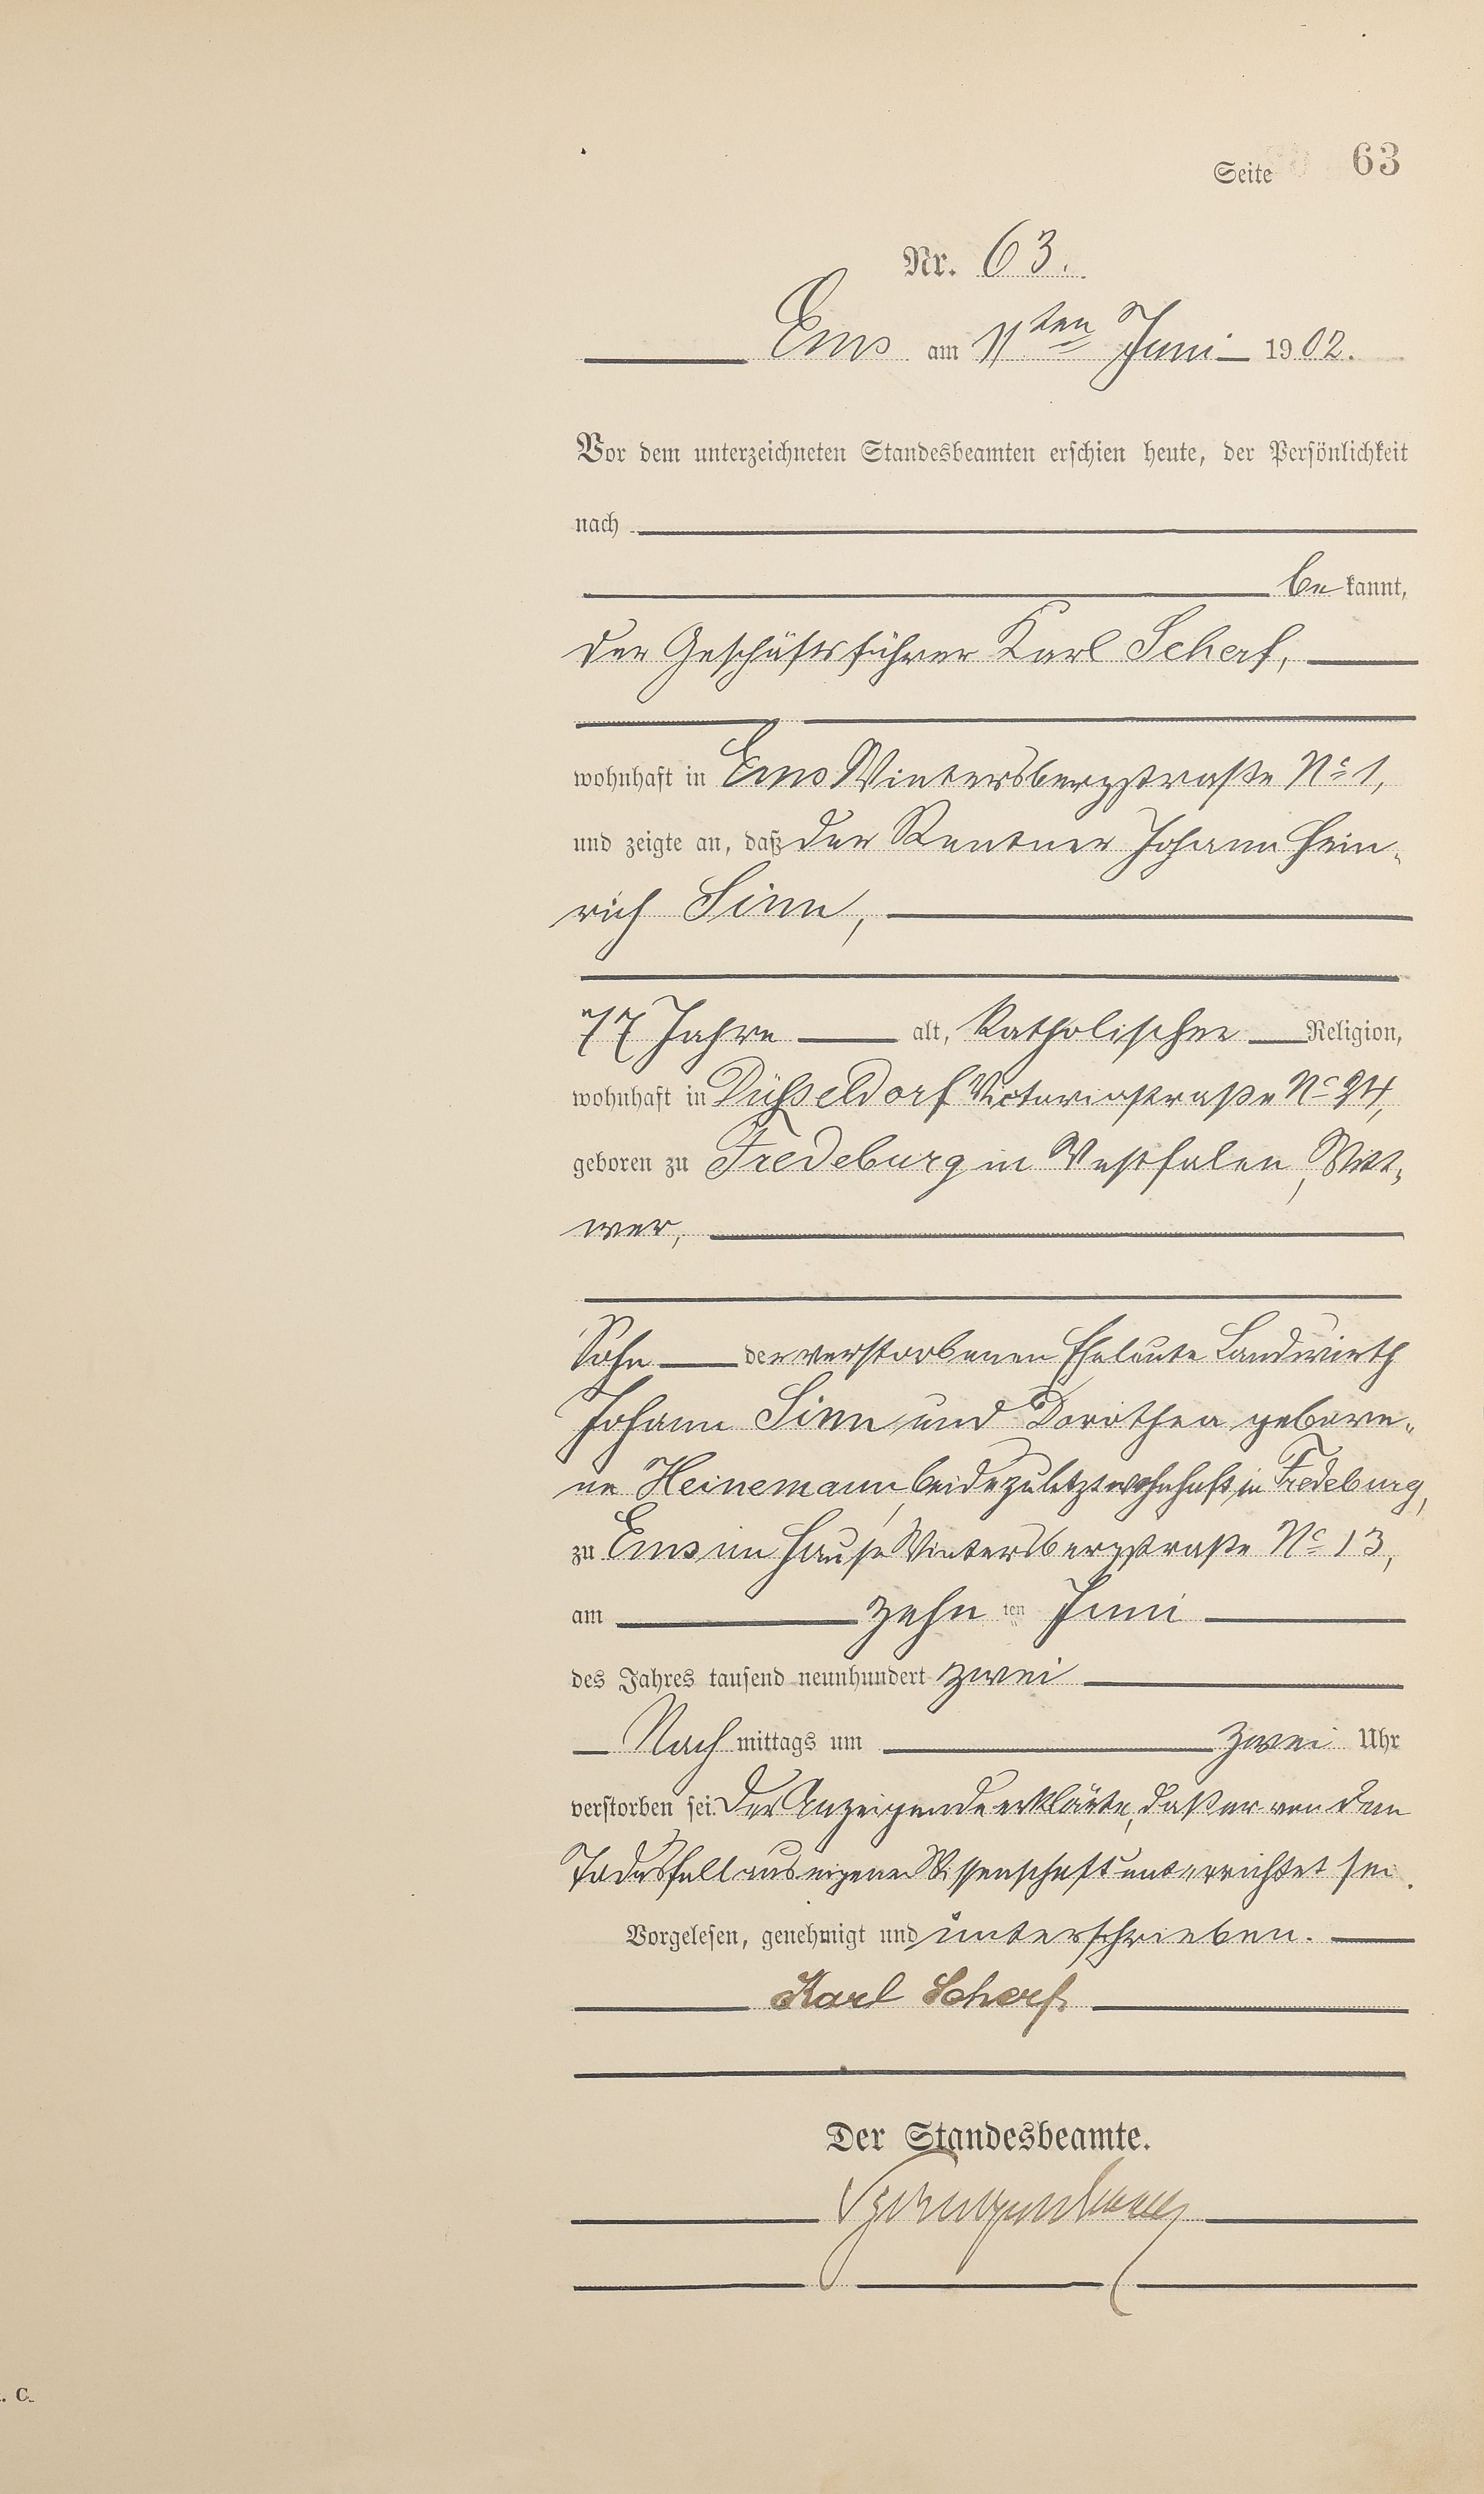 Seite 63
Nr. 63.
Ems am 11ten Juni 1902.
Vor dem unterzeichneten Standesbeamten erschien heute, der Persönlichkeit
nach
be kannt,
der Geschäftsführer Karl Scherf,
wohnhaft in Ems Wintersbergstraße No 1,
und zeigte an, daß der Rentner Johann Hein-
rich Sinn,
77 Jahre alt, katholischer Religion,
wohnhaft in Düsseldorf Victoriastraße No 24,
geboren zu Fredeburg in Westfalen, Witt-
wer,
Sohn der verstorbenen Eheleute Landwirth
Johann Sinn und Dorothea gebore-
ne Heinemann, beide zuletzt wohnhaft in Fredeburg,
zu Ems im Hause Wintersbergstraße No 13,
am zehn ten Juni
des Jahres tausend neunhundert zwei
Nach mittags um zwei Uhr
verstorben sei. Der Anzeigende erklärte, daß er von dem
Todesfall aus eigener Wissenschaft unterrichtet sei.
Vorgelesen, genehmigt und unterschrieben.
Karl Scherf.
Der Standesbeamte.
. C.